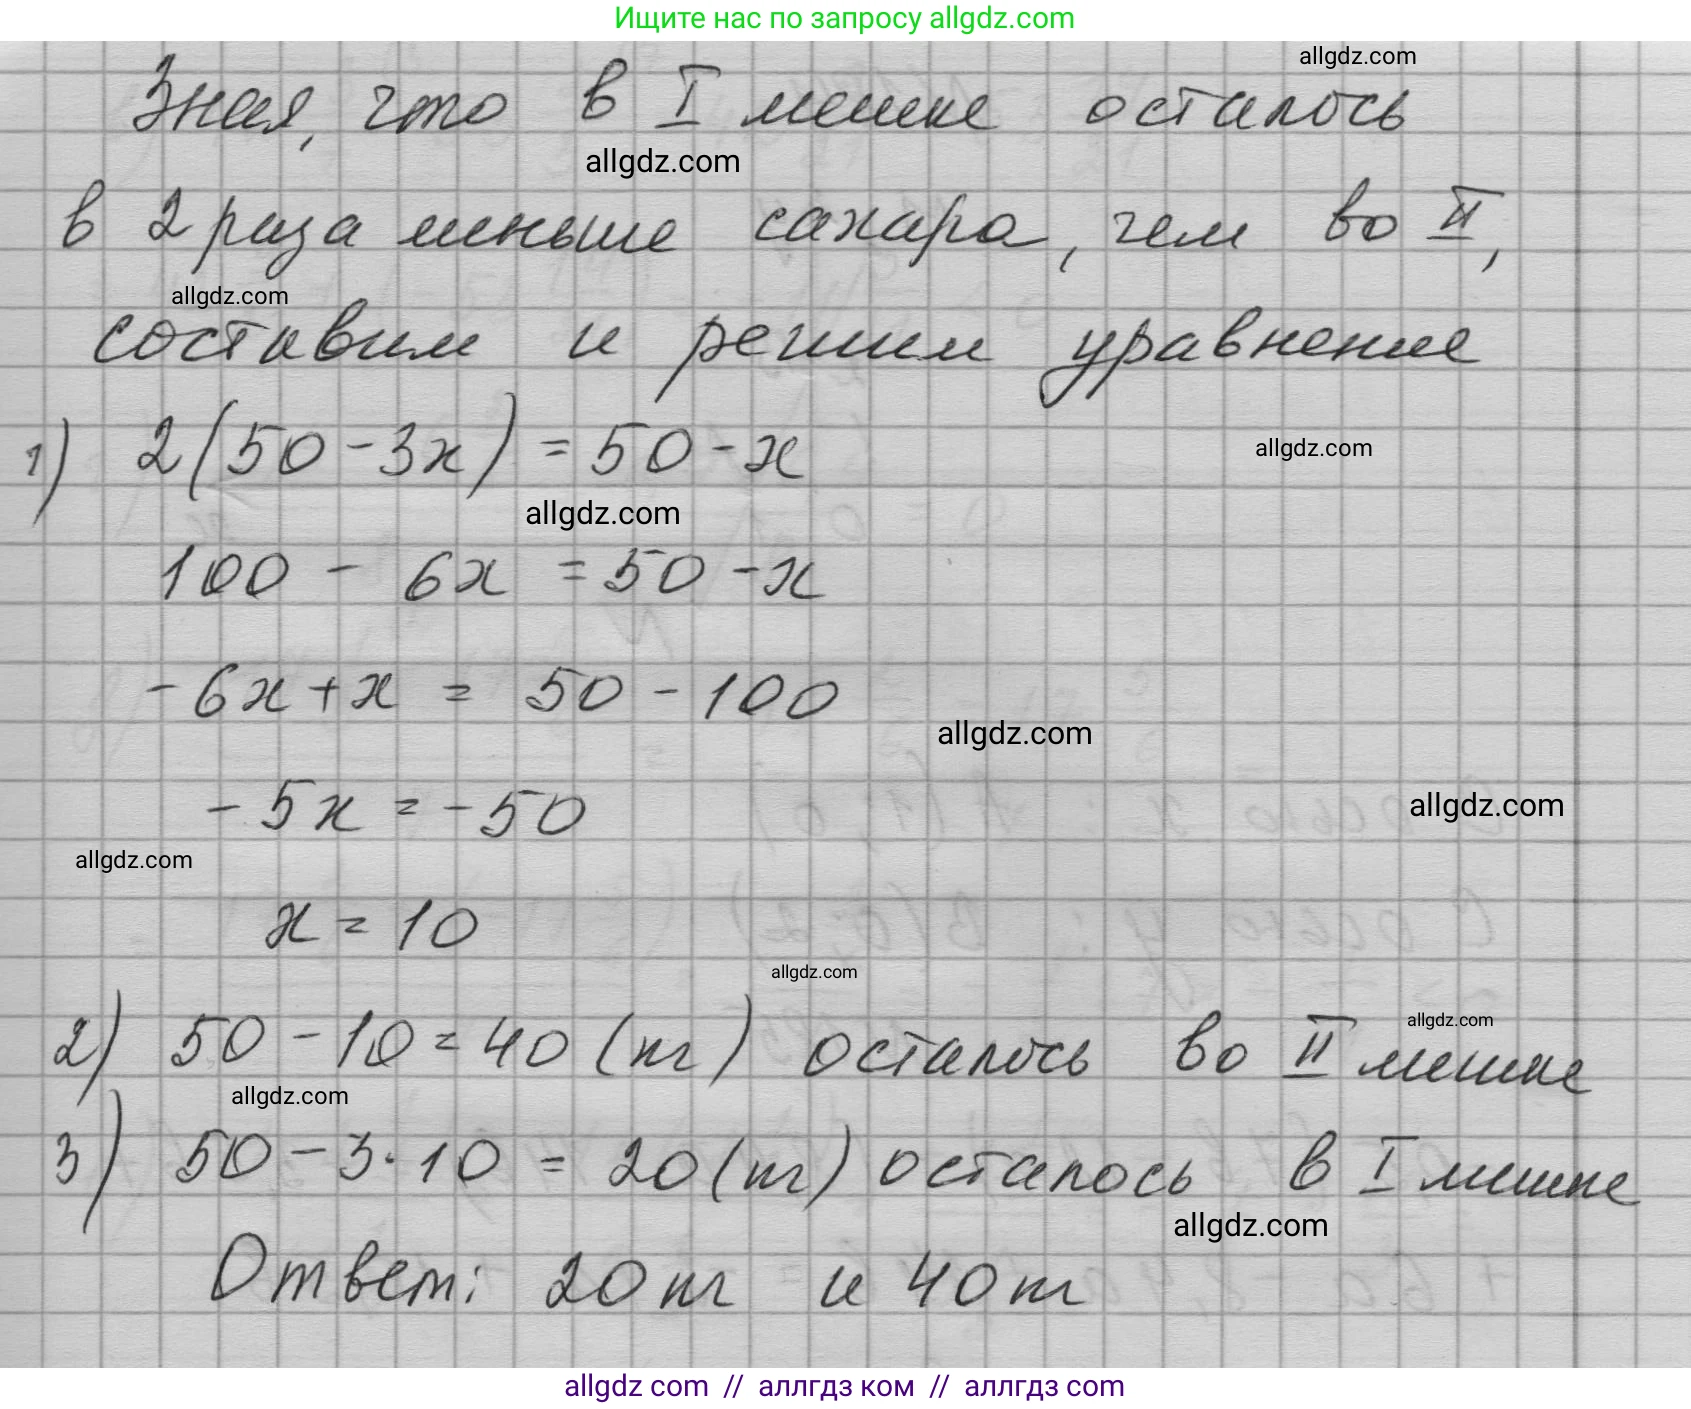 Ищите нас по запросу allgdz.com
allgdz.com
Зная, что в I мешке осталось
allgdz.com
в 2 раза меньше сахара, чем во II,
allgdz.com
составим и решим уравнение
1) 2(50-3x)=50-x
allgdz.com
allgdz.com
100 - 6x =50-x
-6x+x = 50-100
allgdz.com
-5x=-50
allgdz.com
allgdz.com
x=10
allgdz.com
allgdz.com
2) 50-10=40 (кг) осталось во II мешке
allgdz.com
3) 50-3·10 = 20(кг) осталось в I мешке
allgdz.com
Ответ: 20кг и 40кг
allgdz com // аллгдз ком // аллгдз com